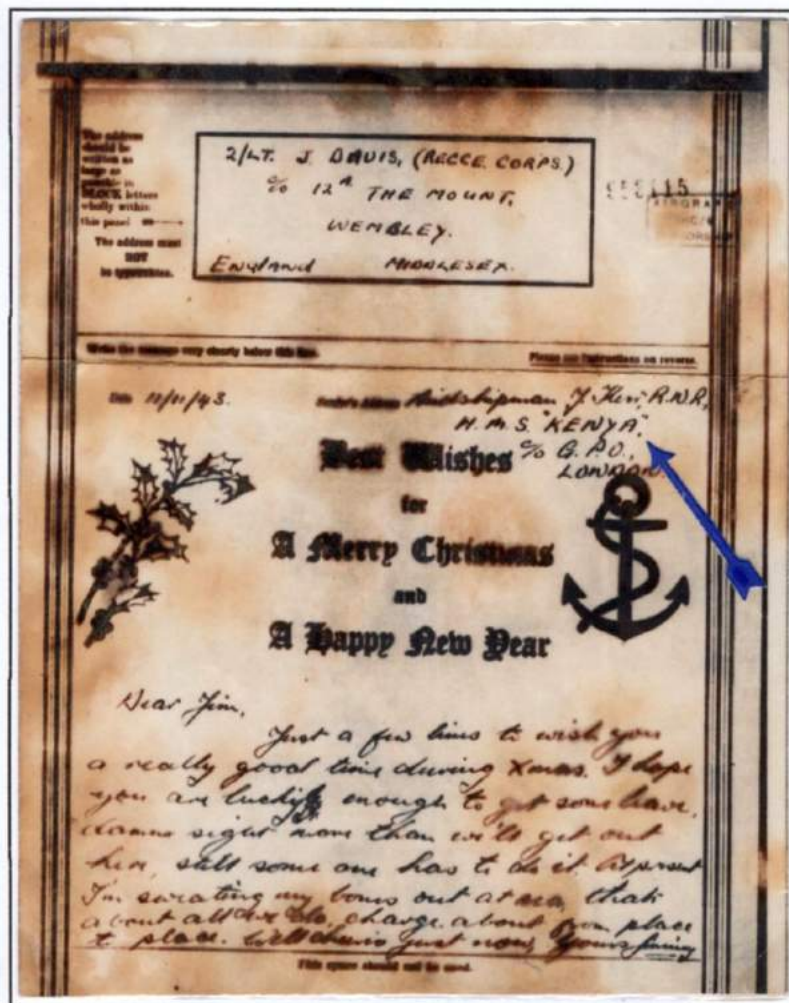 The address
should be
written as
large as
possible in
BLOCK letters
wholly within
this panel
The address must
NOT
be typewritten.
2/LT. J DAVIS, (RECCE. CORPS.)
c/o 12A THE MOUNT,
WEMBLEY.
England MIDDLESEX.
Write the message very clearly below this line.
Please see instructions on reverse.
Date 11/11/43. Sender's Address Midshipman J. R.N.R,
H.M.S "KENYA",
c/o G.P.O.,
LONDON.
Best Wishes
for
A Merry Christmas
and
A Happy New Year
Dear Jim,
Just a few lines to wish you
a really good time during Xmas. I hope
you are lucky enough to get some leave,
damn sight more than we'll get out
here, still some one has to do it. At present
I'm sweating my bones out at sea, thats
about all we do, charge about from place
to place. Well cheerio just now, Yours
This space should not be used.